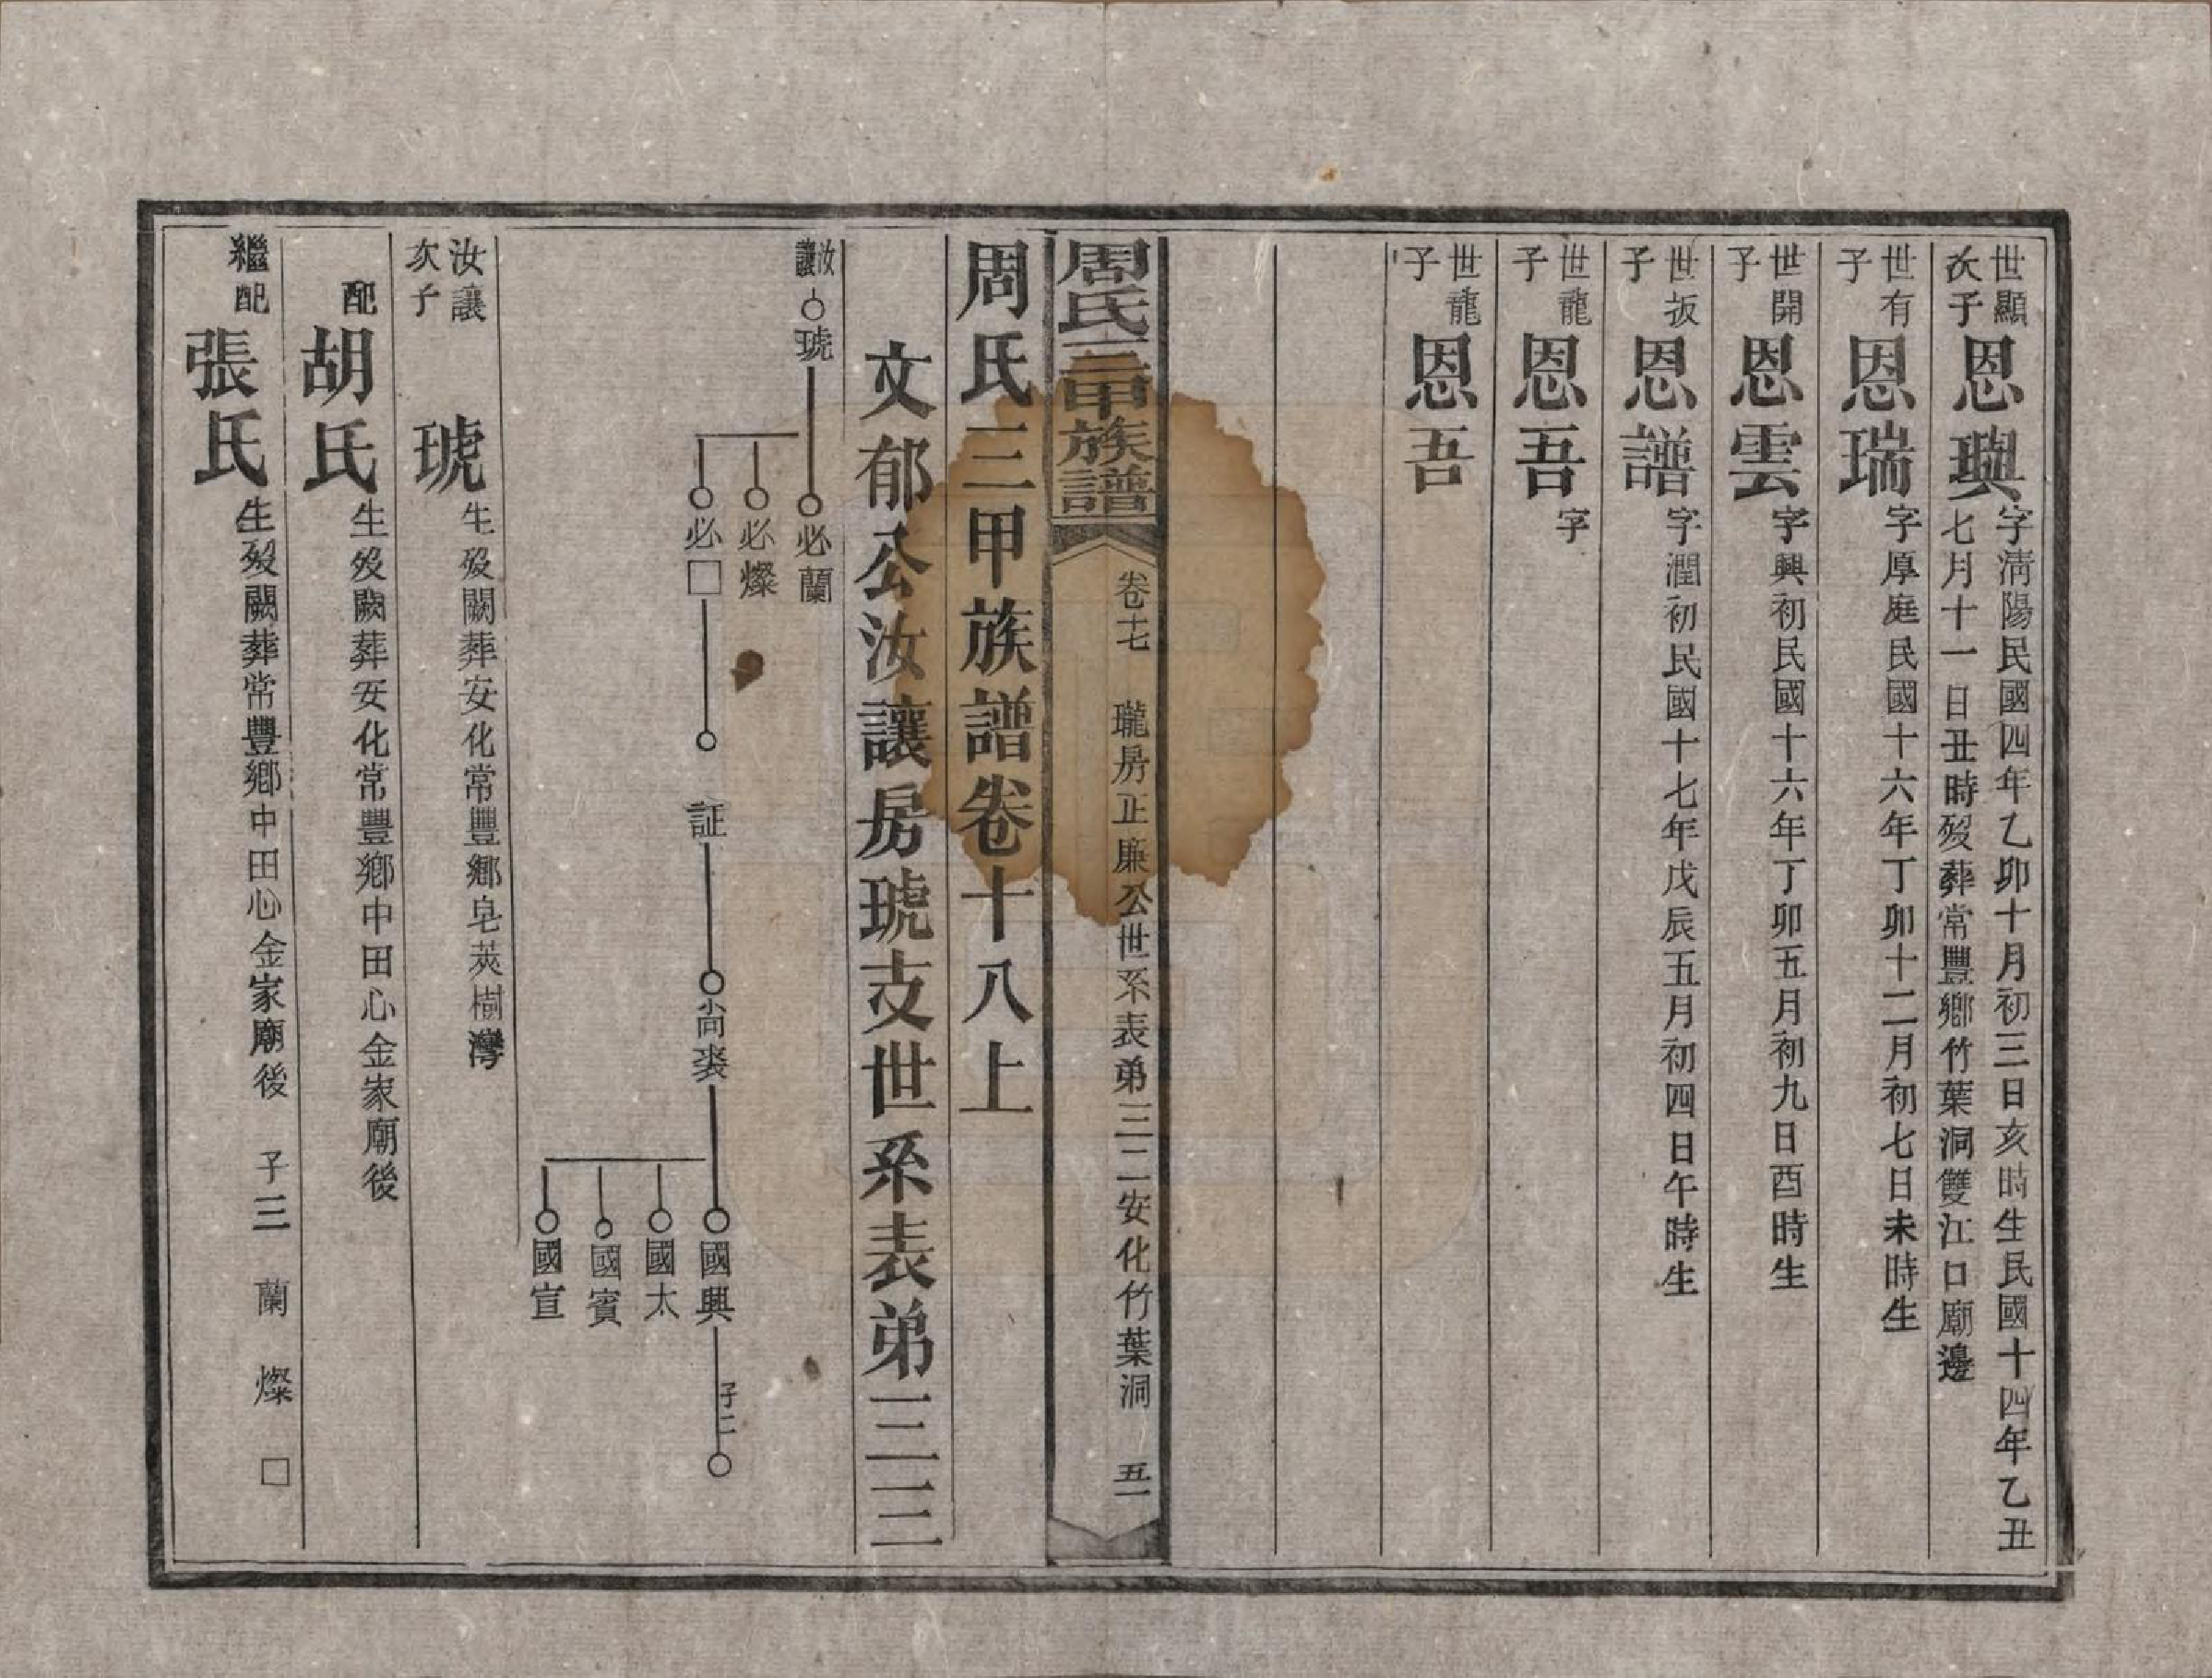 世顯次子 恩璵 字淸陽民國四年乙卯十月初三日亥時生民國十四年乙丑
七月十一日丑時殁葬常豐鄉竹葉洞雙江口廟邊
世有子 恩瑞 字厚庭民國十六年丁卯十二月初七日未時生
世開子 恩雲 字興初民國十六年丁卯五月初九日酉時生
世扳子 恩譜 字潤初民國十七年戊辰五月初四日午時生
世龍子 恩吾 字
世龍子 恩吾
周氏三甲族譜 卷十七 瓏房正廉公世系表弟三二安化竹葉洞 五一
周氏三甲族譜卷十八上
文郁公汝讓房琥支世系表弟三三
汝讓 琥 必蘭
必燦
必□ 証 尚裘 國興 子二
國太
國賓
國宣
汝讓次子 琥 生殁闕葬安化常豐鄉皂莢樹灣
配 胡氏 生殁闕葬安化常豐鄉中田心金家廟後
繼配 張氏 生殁闕葬常豐鄉中田心金家廟後 子三 蘭 燦 □